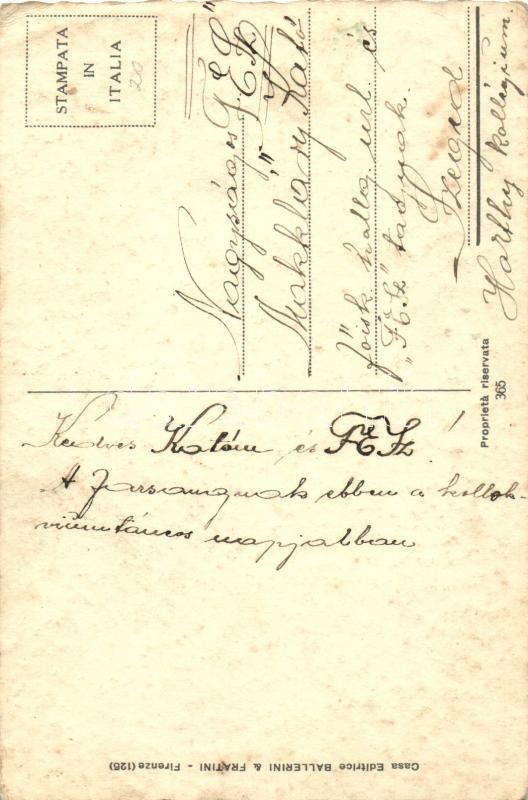 STAMPATA
IN
ITALIA
20
Nagyságos "FÉSZ"
Makkláry Kató
főisk. hallg. url. és
"FÉSZ" tagnak.
Szeged
Horthy Kollégium.
Proprietà riservata
365
Kedves Katóm és FÉSZ!
A farsangnak ebben a kollok-
viumtáncos napjabban
Casa Editrice BALLERINI & FRATINI - Firenze (125)